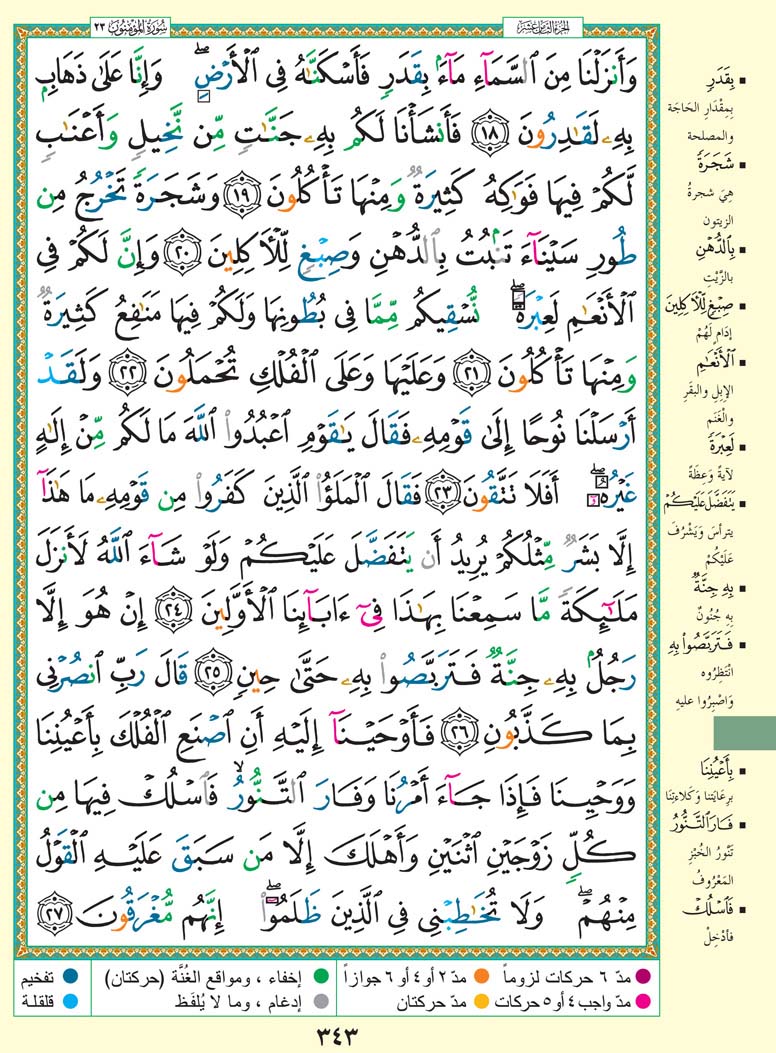 سُورَةُ المُؤْمِنُون ٢٣
الجزء الثامن عشر
وَأَنزَلْنَا مِنَ ٱلسَّمَآءِ مَآءًۢ بِقَدَرٍ فَأَسْكَنَّـٰهُ فِى ٱلْأَرْضِ ۖ وَإِنَّا عَلَىٰ ذَهَابٍۭ
بِهِۦ لَقَـٰدِرُونَ ١٨ فَأَنشَأْنَا لَكُم بِهِۦ جَنَّـٰتٍ مِّن نَّخِيلٍ وَأَعْنَـٰبٍ
لَّكُمْ فِيهَا فَوَٰكِهُ كَثِيرَةٌ وَمِنْهَا تَأْكُلُونَ ١٩ وَشَجَرَةً تَخْرُجُ مِن
طُورِ سَيْنَآءَ تَنۢبُتُ بِٱلدُّهْنِ وَصِبْغٍ لِّلْـَٔاكِلِينَ ٢٠ وَإِنَّ لَكُمْ فِى
ٱلْأَنْعَـٰمِ لَعِبْرَةً ۖ نُّسْقِيكُم مِّمَّا فِى بُطُونِهَا وَلَكُمْ فِيهَا مَنَـٰفِعُ كَثِيرَةٌ
وَمِنْهَا تَأْكُلُونَ ٢١ وَعَلَيْهَا وَعَلَى ٱلْفُلْكِ تُحْمَلُونَ ٢٢ وَلَقَدْ
أَرْسَلْنَا نُوحًا إِلَىٰ قَوْمِهِۦ فَقَالَ يَـٰقَوْمِ ٱعْبُدُوا۟ ٱللَّهَ مَا لَكُم مِّنْ إِلَـٰهٍ
غَيْرُهُۥٓ ۖ أَفَلَا تَتَّقُونَ ٢٣ فَقَالَ ٱلْمَلَؤُا۟ ٱلَّذِينَ كَفَرُوا۟ مِن قَوْمِهِۦ مَا هَـٰذَآ
إِلَّا بَشَرٌ مِّثْلُكُمْ يُرِيدُ أَن يَتَفَضَّلَ عَلَيْكُمْ وَلَوْ شَآءَ ٱللَّهُ لَأَنزَلَ
مَلَـٰٓئِكَةً مَّا سَمِعْنَا بِهَـٰذَا فِىٓ ءَابَآئِنَا ٱلْأَوَّلِينَ ٢٤ إِنْ هُوَ إِلَّا
رَجُلٌۢ بِهِۦ جِنَّةٌ فَتَرَبَّصُوا۟ بِهِۦ حَتَّىٰ حِينٍ ٢٥ قَالَ رَبِّ ٱنصُرْنِى
بِمَا كَذَّبُونِ ٢٦ فَأَوْحَيْنَآ إِلَيْهِ أَنِ ٱصْنَعِ ٱلْفُلْكَ بِأَعْيُنِنَا
وَوَحْيِنَا فَإِذَا جَآءَ أَمْرُنَا وَفَارَ ٱلتَّنُّورُ ۙ فَٱسْلُكْ فِيهَا مِن
كُلٍّ زَوْجَيْنِ ٱثْنَيْنِ وَأَهْلَكَ إِلَّا مَن سَبَقَ عَلَيْهِ ٱلْقَوْلُ
مِنْهُمْ ۖ وَلَا تُخَـٰطِبْنِى فِى ٱلَّذِينَ ظَلَمُوٓا۟ ۖ إِنَّهُم مُّغْرَقُونَ ٢٧
بِقَدَرٍ
بِمِقْدَارِ الحَاجَة
والمصلحة
شَجَرَةً
هِيَ شجرةُ
الزيتون
بِٱلدُّهْنِ
بالزَّيْتِ
صِبْغٍ لِّلْـَٔاكِلِينَ
إدَامٍ لَهُمْ
ٱلْأَنْعَـٰمِ
الإِبِلِ والبقَرِ
والْغَنَمِ
لَعِبْرَةً
لآيةً وَعِظَةً
يَتَفَضَّلَ عَلَيْكُمْ
يترأسَ وَيَشْرُفَ
عَلَيْكُمْ
بِهِۦ جِنَّةٌ
بِهِ جُنُونٌ
فَتَرَبَّصُوا۟ بِهِۦ
انْتَظِرُوه
وَاصْبِرُوا عليهِ
بِأَعْيُنِنَا
بِرِعَايَتِنا وَكلاءَتِنَا
فَارَ ٱلتَّنُّورُ
تَنُّورُ الخُبْزِ
المَعْرُوفُ
فَٱسْلُكْ
فأَدْخِلْ
مدّ ٦ حركات لزوماً مدّ ٢ أو ٤ أو ٦ جوازاً إخفاء ، ومواقع الغُنَّة (حركتان) تفخيم
مدّ واجب ٤ أو ٥ حركات مدّ حركتان إدغام ، وما لا يُلفَظ قلقلة
٣٤٣